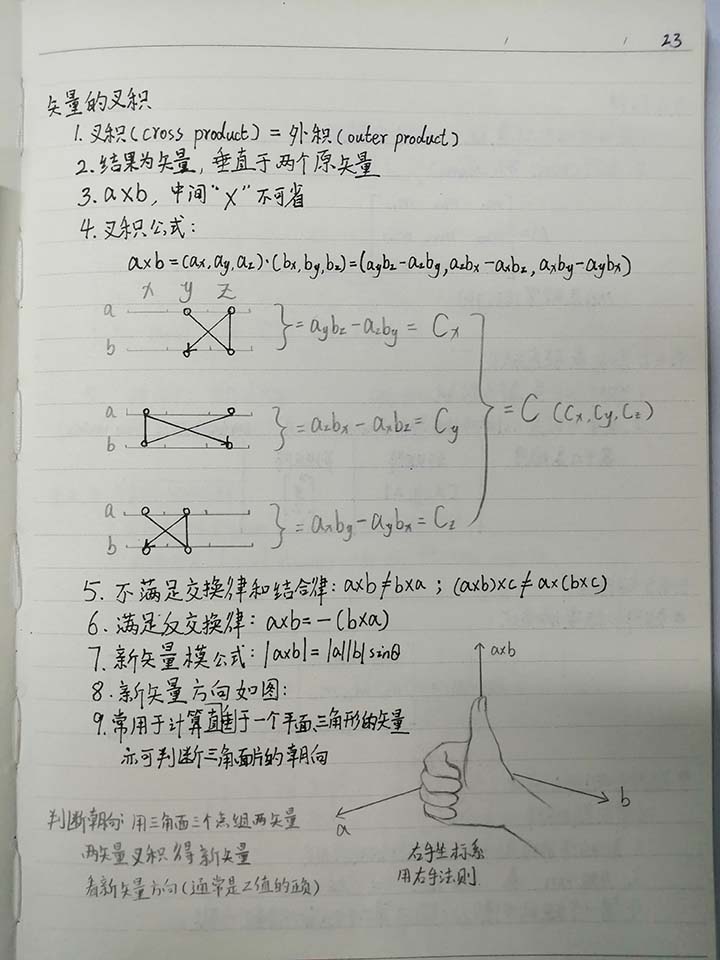 23
矢量的叉积
1. 叉积(cross product) = 外积(outer product)
2. 结果为矢量，垂直于两个原矢量
3. a×b，中间"×"不可省
4. 叉积公式：
a×b = (ax, ay, az)·(bx, by, bz) = (aybz-azby, azbx-axbz, axby-aybx)
x y z
a
b
= aybz-azby = Cx
a
b
= azbx-axbz = Cy
= C (Cx, Cy, Cz)
a
b
= axby-aybx = Cz
5. 不满足交换律和结合律：a×b≠b×a；(a×b)×c≠a×(b×c)
6. 满足反交换律：a×b=-(b×a)
7. 新矢量模公式：|a×b|=|a||b|sinθ
8. 新矢量方向如图：
9. 常用于计算垂直于一个平面、三角形的矢量
亦可判断三角面片的朝向
a×b
a
b
右手坐标系
用右手法则
判断朝向：用三角面三个点组两矢量
两矢量叉积得新矢量
看新矢量方向(通常是Z值的正负)